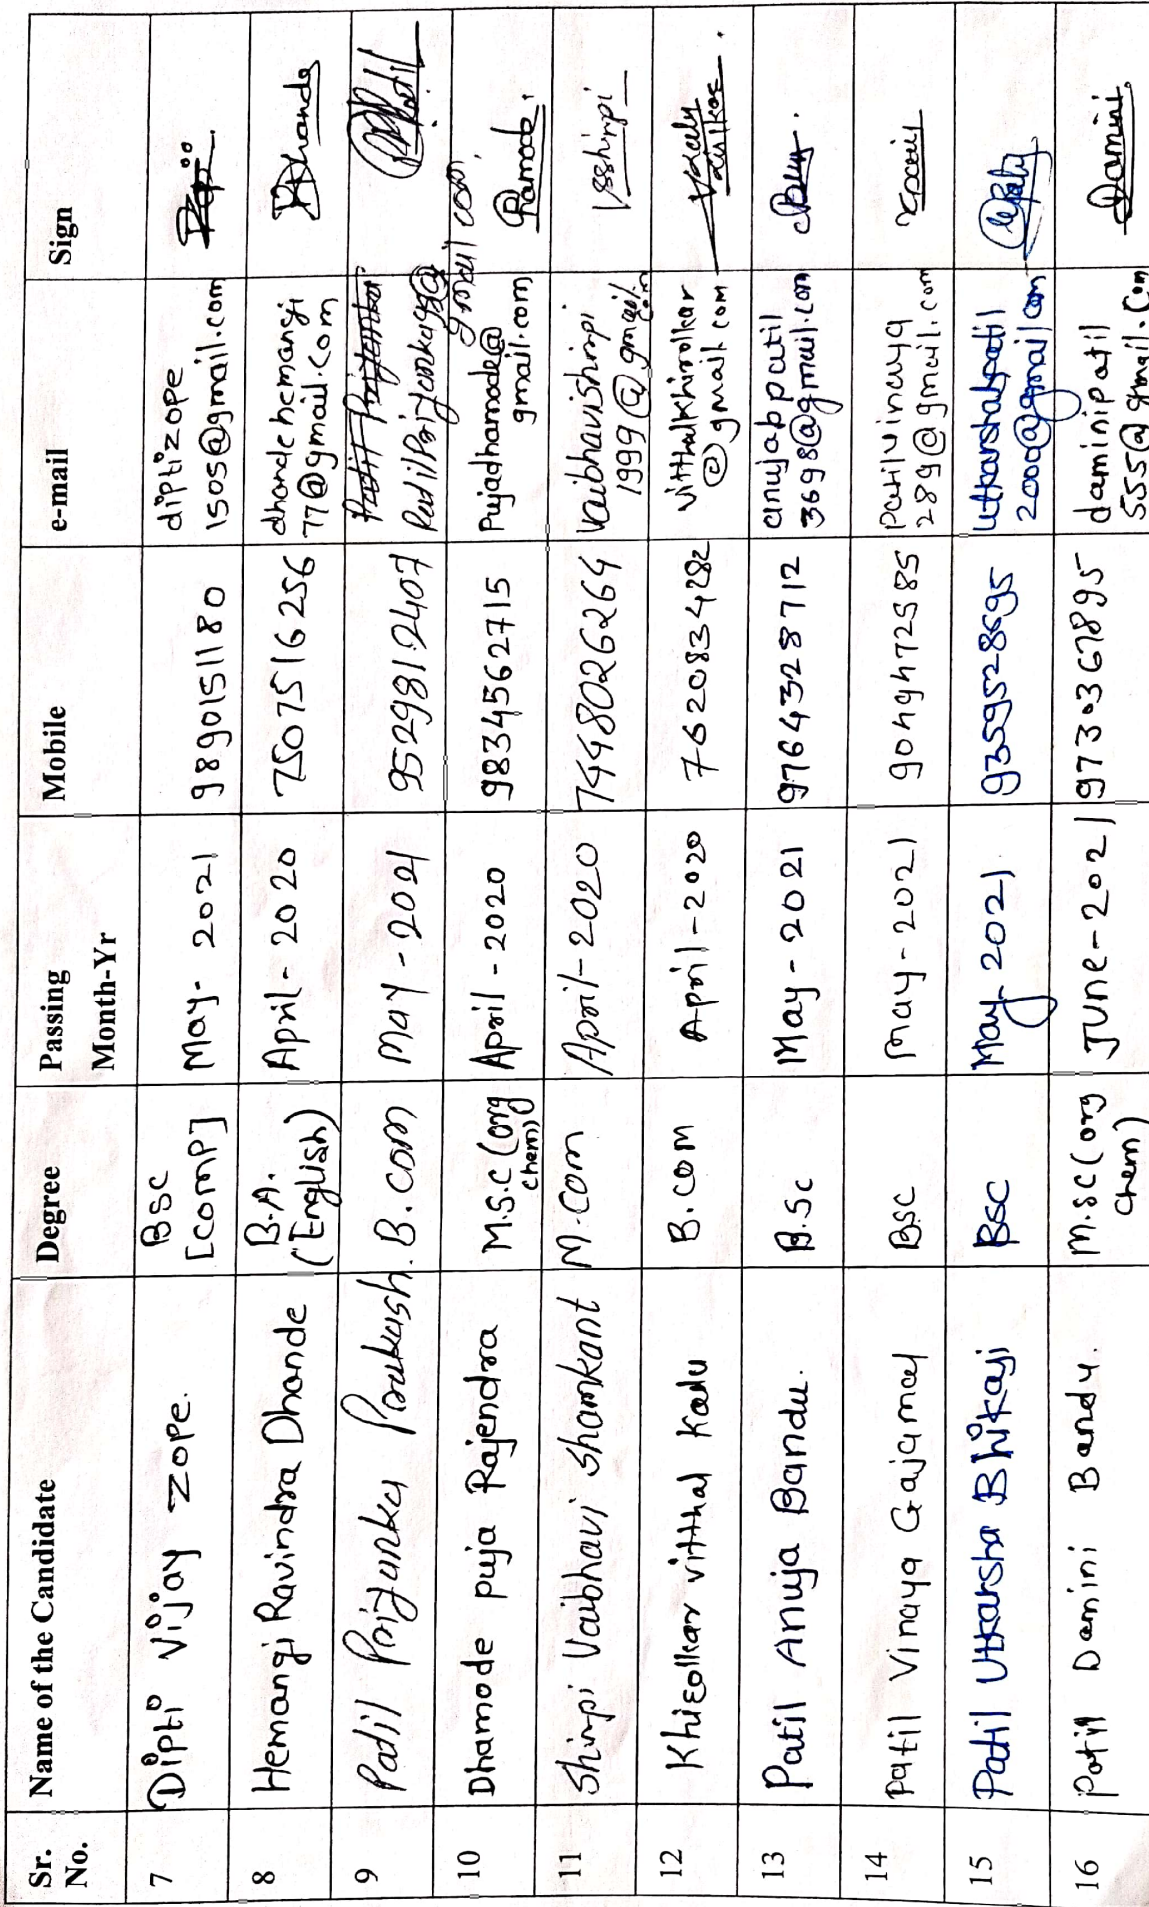 Sr. No. Name of the Candidate Degree Passing Month-Yr Mobile e-mail Sign
7 Dipti Vijay Zope. BSC [comp] May- 2021 9890151180 diptizope 1505@gmail.com
8 Hemangi Ravindra Dhande B.A. (English) April - 2020 7507516256 dhandehemangi 77@gmail.com Dhande
9 Patil Priyanka Prakash. B.com May - 2021 9529812407 PatilPriyanka95@ gmail com. Patil
10 Dhamode puja Rajendra M.S.C (org chem) April - 2020 9834562715 Pujadhamode@ gmail.com
11 Shimpi Vaibhavi Shamkant M.Com April-2020 7448026264 Vaibhavishimpi 1999@gmail.com VSShimpi
12 Khirolkar vitthal Kadu B.com April-2020 7620834282 vitthalkhirolkar @gmail.com
13 Patil Anuja Bandu. B.Sc May - 2021 9764328712 anujabpatil 3698@gmail.com
14 Patil Vinaya Gajamal BSC May - 2021 9049472585 Patilvinaya 289@gmail.com
15 Patil Utkarsha Bhikaji BSC May-2021 9359528695 utkarshabpatil 2000@gmail com
16 Patil Damini Bandu. M.sc(org chem) JUNE-2021 9730367895 daminipatil 5555@gmail.com Damini